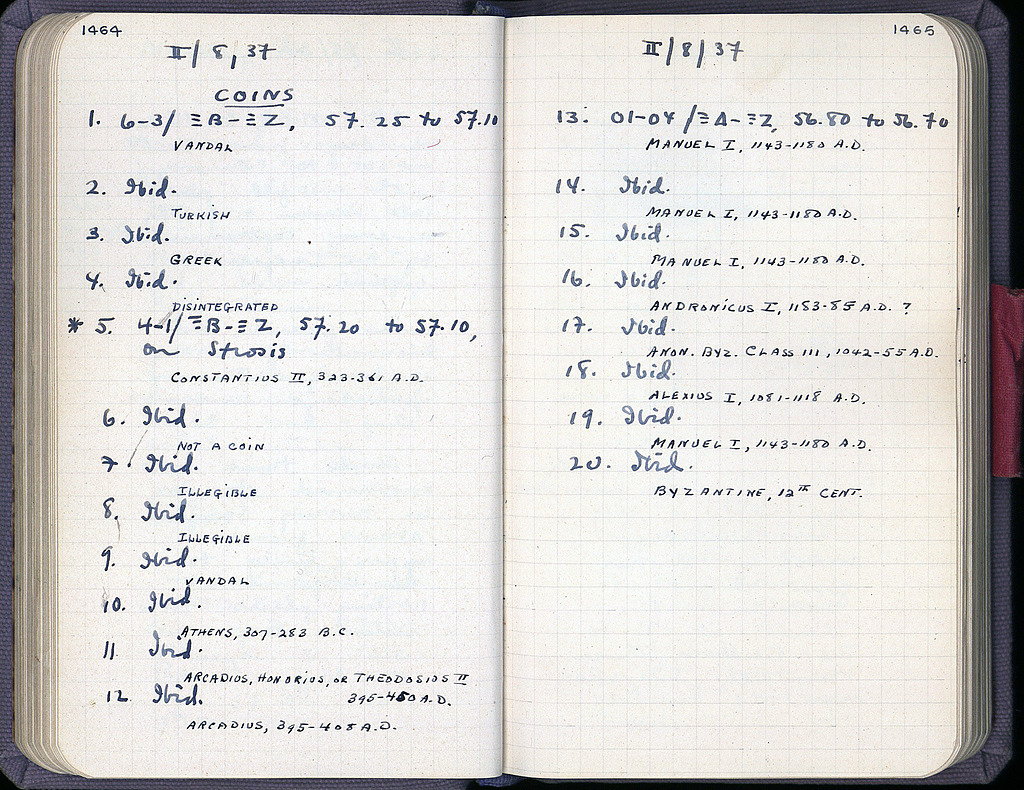 1464
II/8,37
COINS
1. 6-3/ΞB-ΞZ, 57.25 to 57.10
VANDAL
2. Ibid.
TURKISH
3. Ibid.
GREEK
4. Ibid.
DISINTEGRATED
* 5. 4-1/ΞB-ΞZ, 57.20 to 57.10,
on Strosis
CONSTANTIUS II, 323-361 A.D.
6. Ibid.
NOT A COIN
7. Ibid.
ILLEGIBLE
8. Ibid.
ILLEGIBLE
9. Ibid.
VANDAL
10. Ibid.
ATHENS, 307-283 B.C.
11 Ibid.
ARCADIUS, HONORIUS, OR THEODOSIUS II
12 Ibid. 395-450 A.D.
ARCADIUS, 395-408 A.D.
1465
II/8/37
13. 01-04/ΞΔ-ΞZ, 56.80 to 56.70
MANUEL I, 1143-1180 A.D.
14. Ibid.
MANUEL I, 1143-1180 A.D.
15. Ibid.
MANUEL I, 1143-1180 A.D.
16. Ibid.
ANDRONICUS I, 1183-85 A.D. ?
17. Ibid.
ANON. BYZ. CLASS III, 1042-55 A.D.
18. Ibid.
ALEXIUS I, 1081-1118 A.D.
19. Ibid.
MANUEL I, 1143-1180 A.D.
20. Ibid.
BYZANTINE, 12TH CENT.